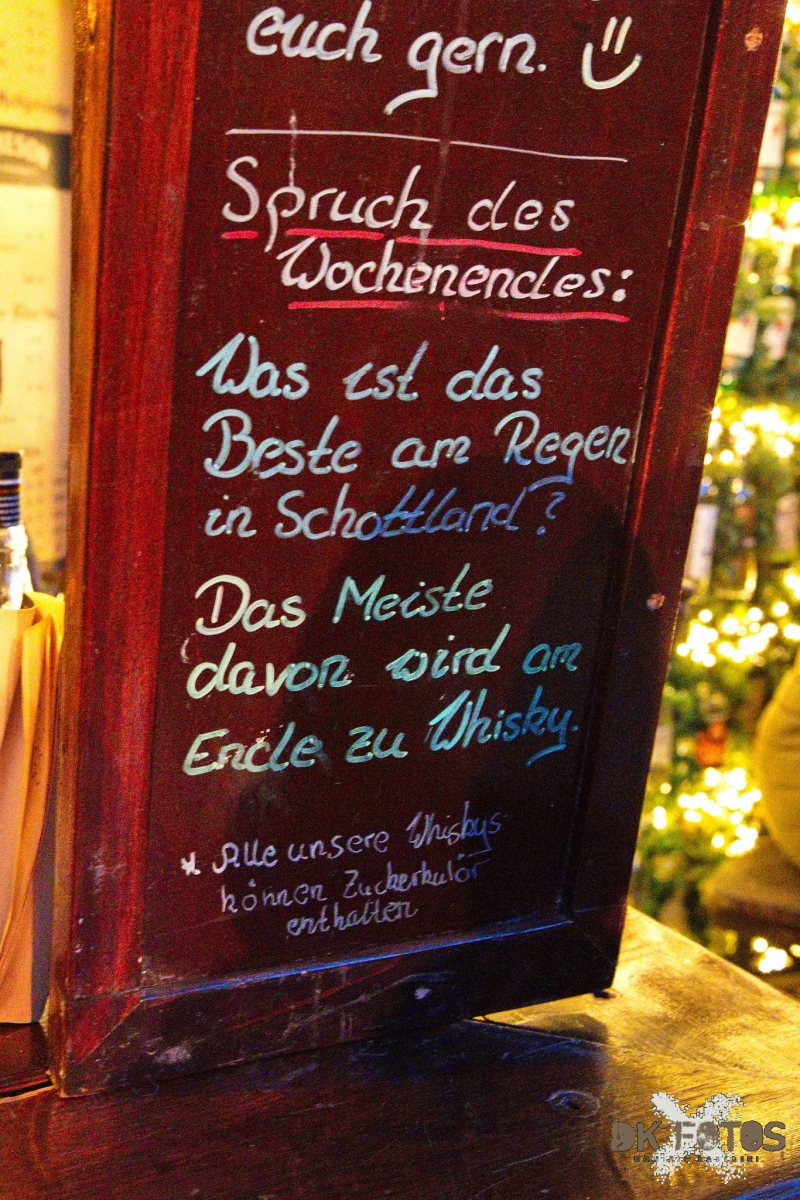 euch gern.
Spruch des
Wochenendes:
Was ist das
Beste am Regen
in Schottland?
Das Meiste
davon wird am
Ende zu Whisky.
* Alle unsere Whiskys
können Zuckerkulör
enthalten
DK FOTOS